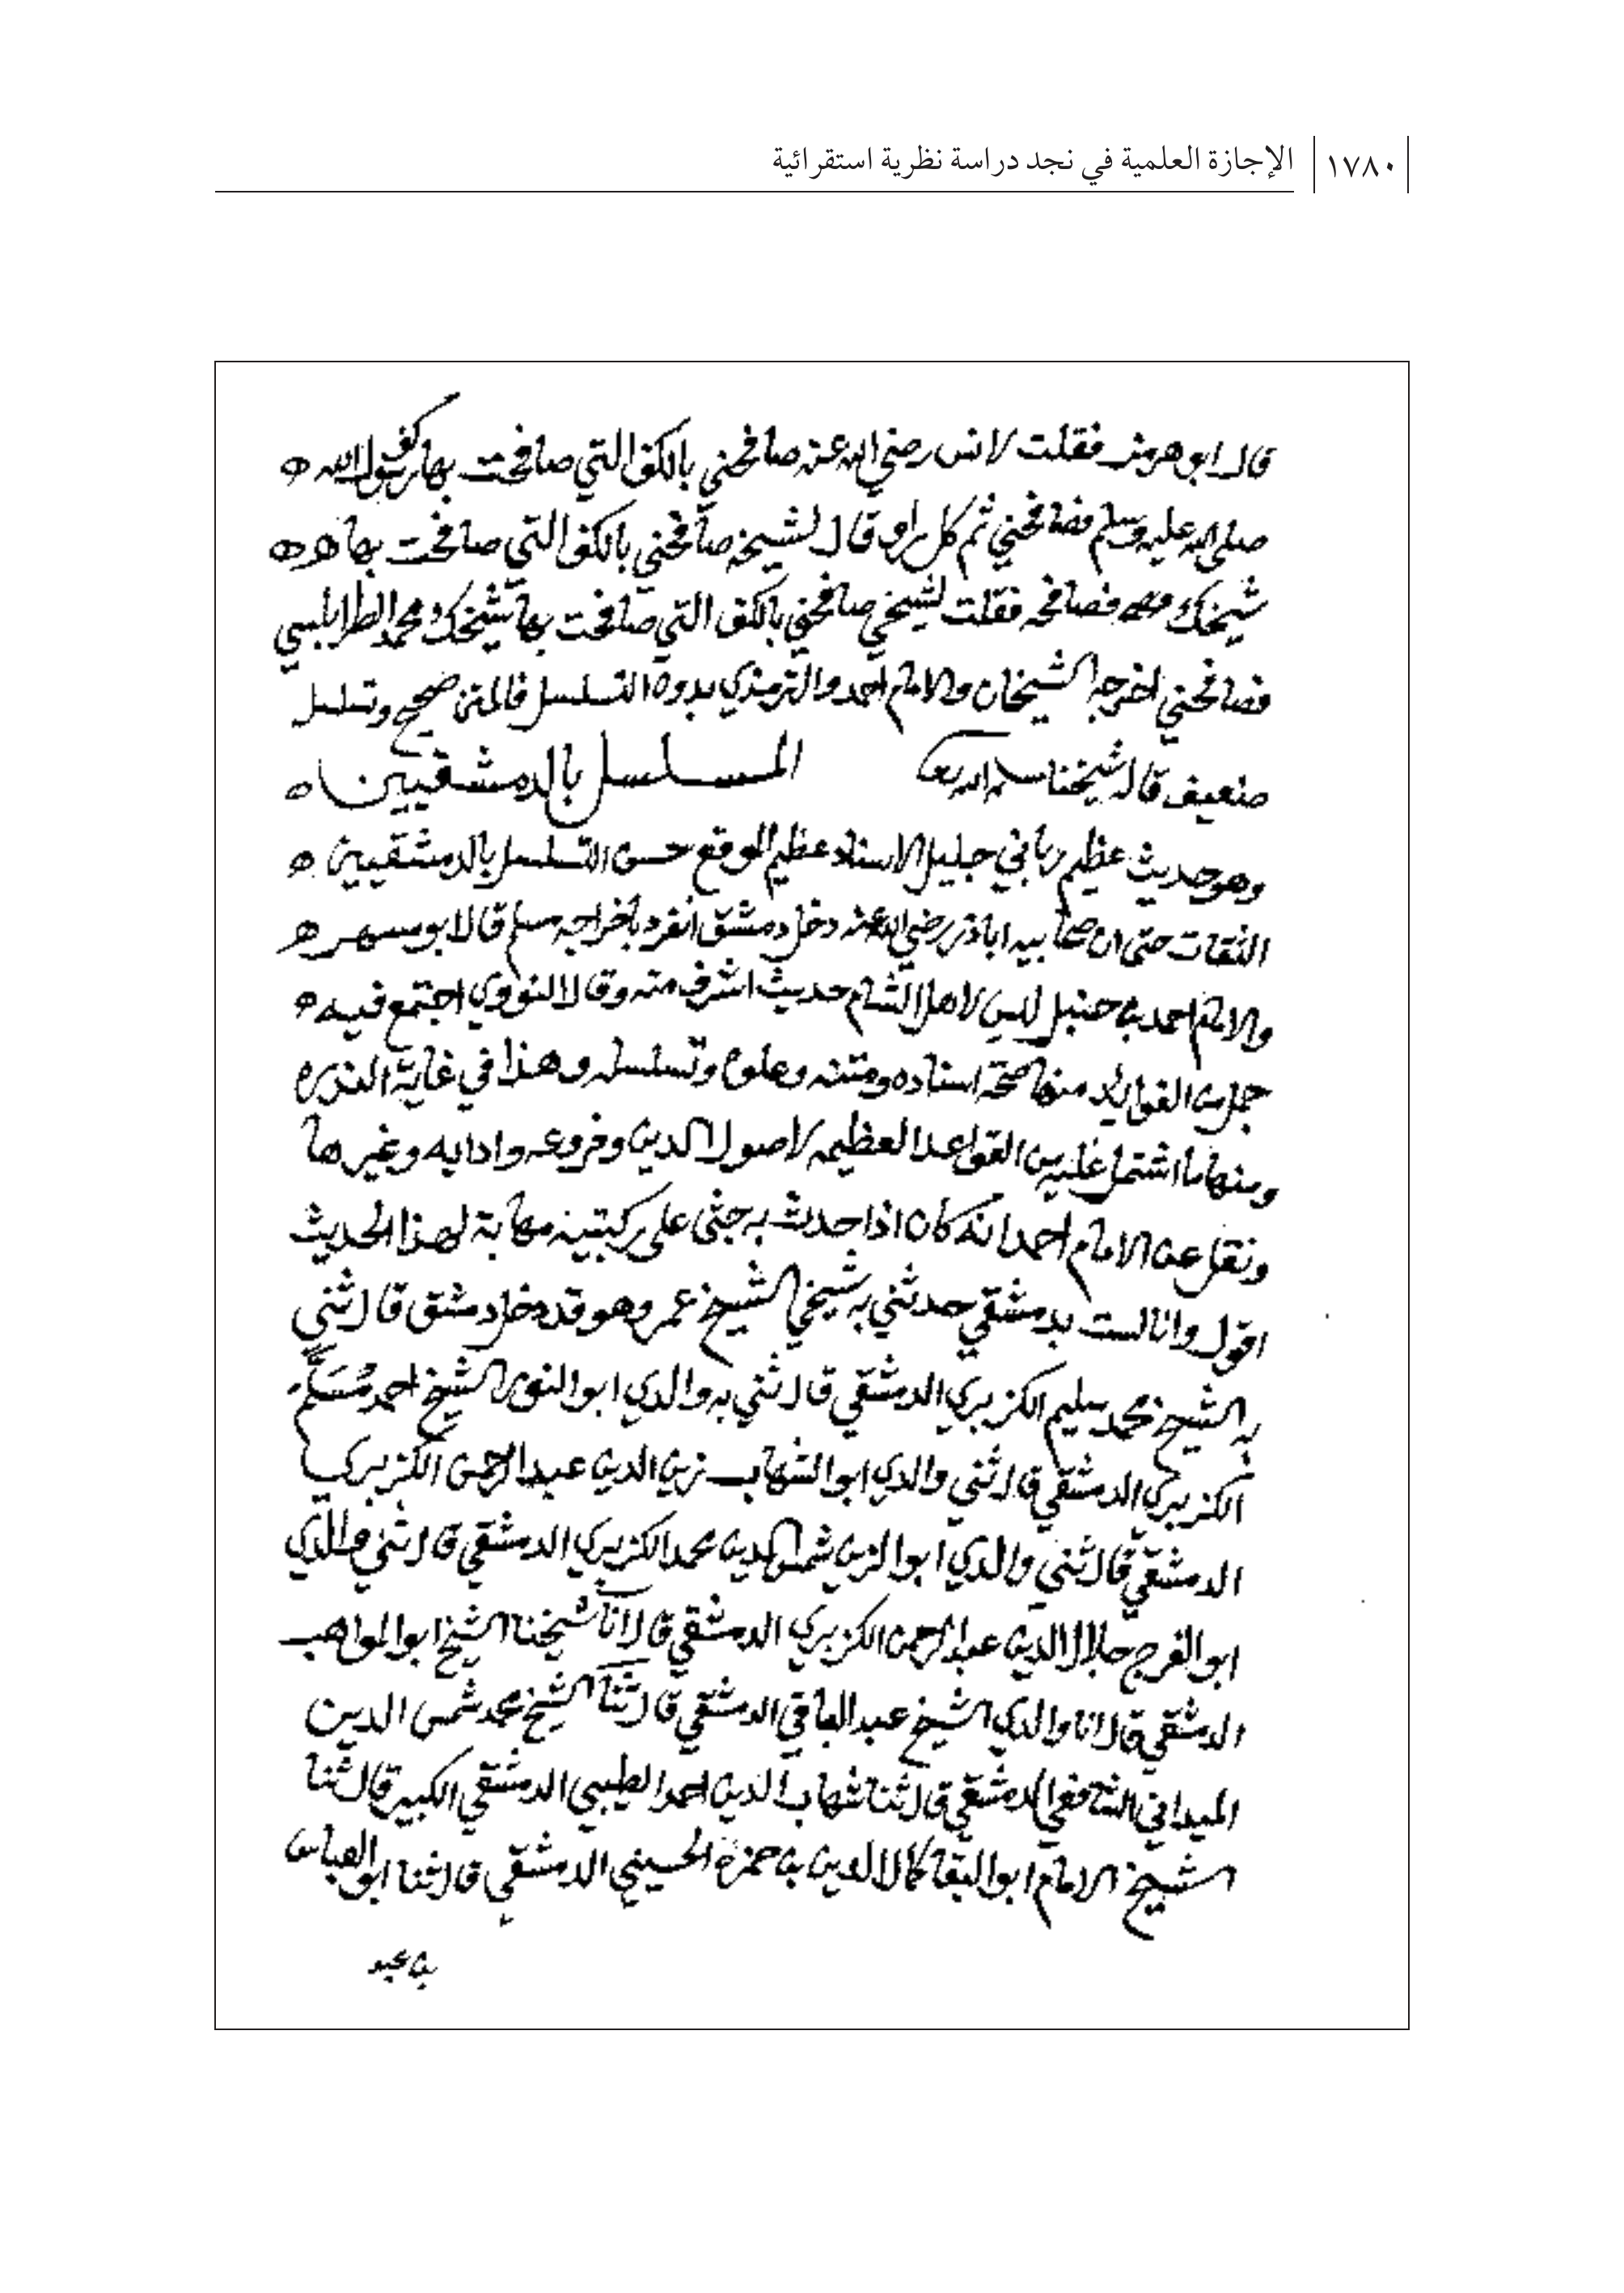 ١٧٨٠ الإجازة العلمية في نجد دراسة نظرية استقرائية
قال ابو هرمز فقلت لانس رضي الله عنه صافحني بالكف التي صافحت بها كف رسول الله
صلى الله عليه وسلم فصافحني ثم كل راو قال لشيخه صافحني بالكف التي صافحت بها
شيخك فصافحه فقلت لشيخي صافحني بالكف التي صافحت بها شيخك محمد الطرابلسي
فصافحني اخرجه الشيخان والامام احمد والترمذي بدون التسلسل فالمتن صحيح وتسلسل
ضعيف قال شيخنا سلمه الله تعا المسلسل بالدمشقيين
وهو حديث عظيم رباني جليل الاسناد عظيم الموقع حسن التسلسل بالدمشقيين
الثقات حتى ان صحابيه اباذر رضي الله عنه دخل دمشق انفرد باخراجه مسلم قال ابو مسهر
والامام احمد بن حنبل ليس لاهل الشام حديث اشرف منه وقال النووي اجتمع فيه
جمل من الفوايد منها صحة اسناده ومتنه وعلوه وتسلسله وهذا في غاية الندره
ومنها ما اشتمل عليه من القواعد العظيمه لاصول الدين وفروعه وادابه وغيرها
ونقل عن الامام احمد انه كان اذا حدث به جثى على ركبتيه مهابة لهذا الحديث
اقول وانا لست بدمشقي حدثني به شيخي الشيخ عمر وهو قد دخل دمشق قال ثني
به الشيخ محمد سليم الكزبري الدمشقي قال ثني به والدي ابو النور الشيخ احمد مُسَلَّم
الكزبري الدمشقي قال ثني والدي ابو الشهاب زين الدين عبد الرحمن الكزبري
الدمشقي قال ثني والدي ابو الزين شمس الدين محمد الكزبري الدمشقي قال ثني والدي
ابو الفرج جلال الدين عبد الرحمن الكزبري الدمشقي قال انا شيخنا الشيخ ابو المواهب
الدمشقي قال انا والدي الشيخ عبد الباقي الدمشقي قال ثنا الشيخ محمد شمس الدين
الميداني الشافعي الدمشقي قال ثنا شهاب الدين احمد الطيبي الدمشقي الكبير قال ثنا
الشيخ الامام ابو البقا كمال الدين بن حمزة الحسيني الدمشقي قال ثنا ابو العباس
بن عبد